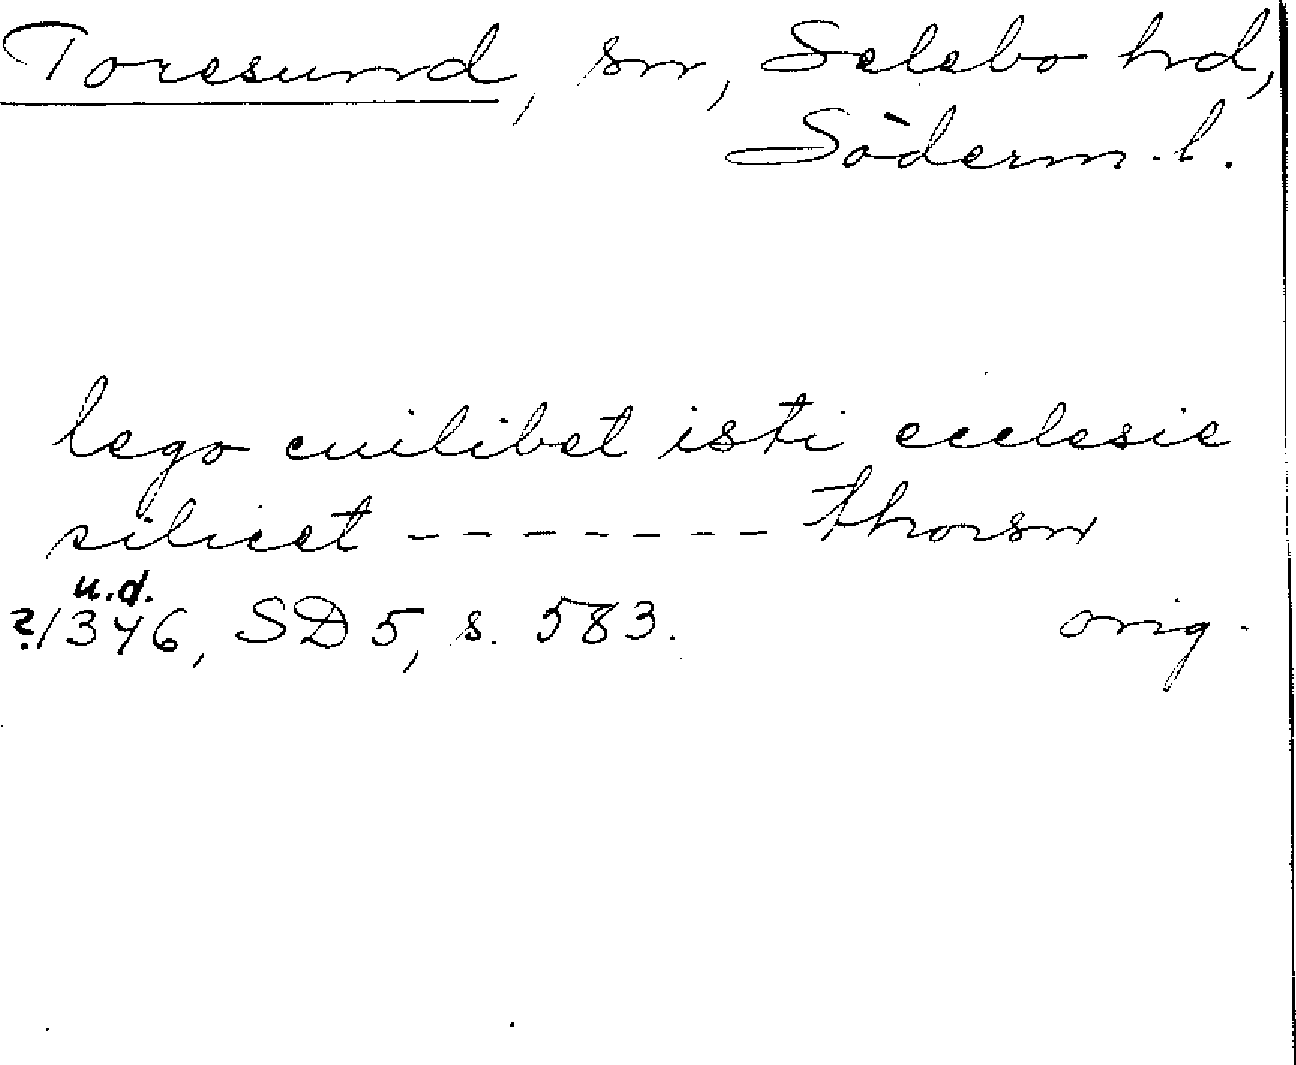 Toresund, sn, Selebo hd,
Söderm. l.
lego cuilibet isti ecclesie
silicet - - - - - - - thorsn
u.d.
? 1346, SD 5, s. 583. orig.